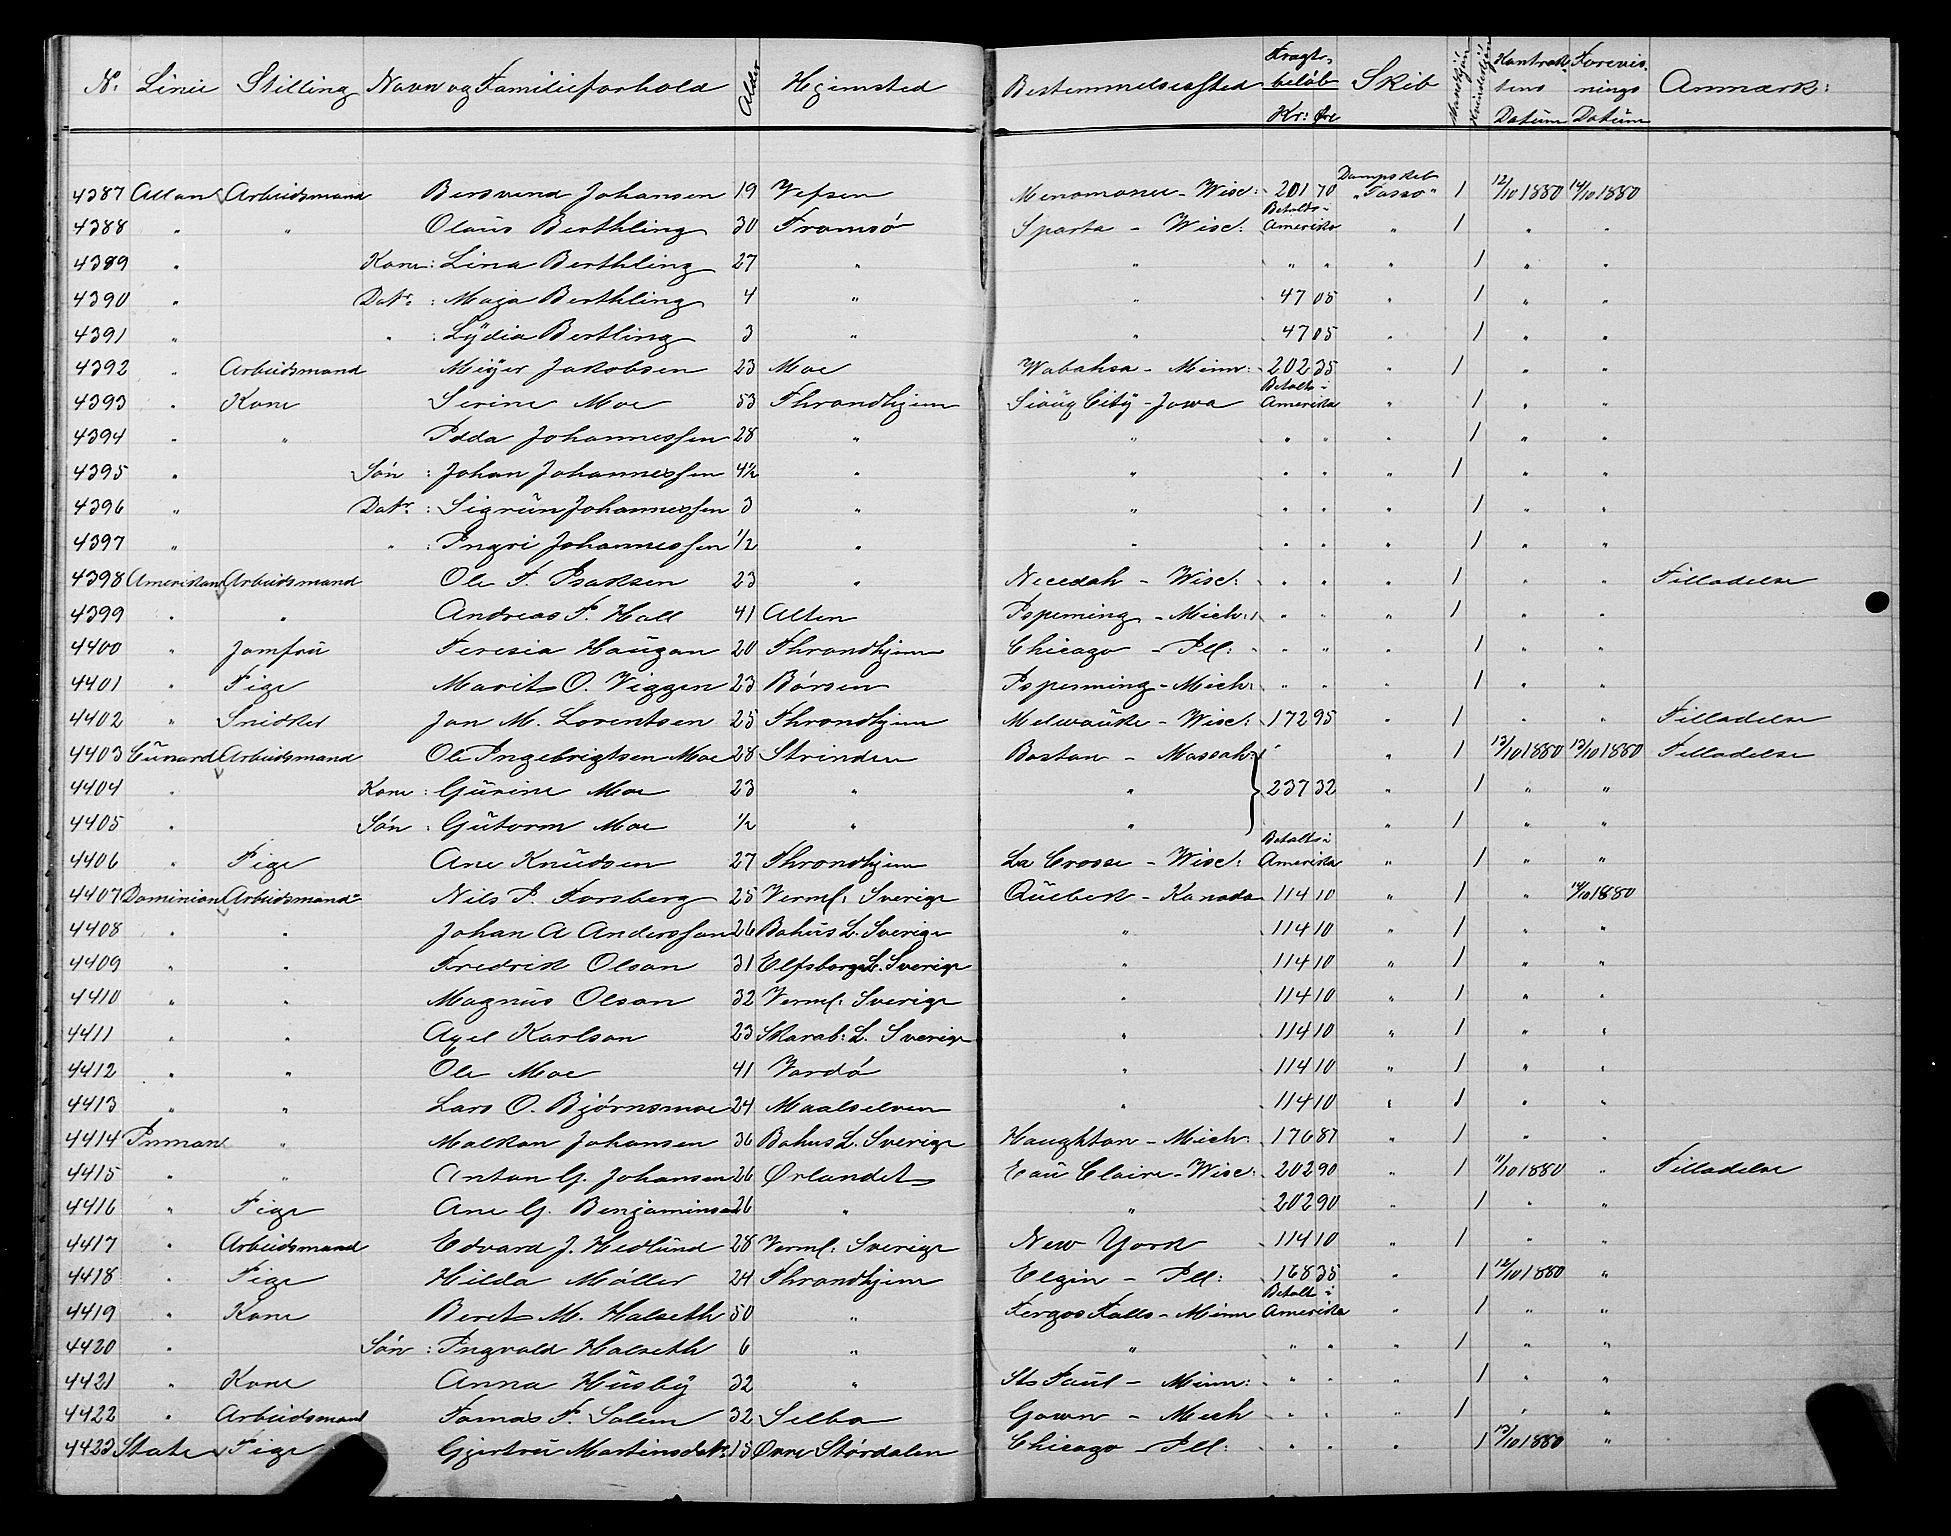 N: Linie Stilling Navn og Familieforhold Alder Hjemsted Bestemmelsessted Fragtbeløb Kr: Øre Skib Mandkjøn Kvindekjøn Kontraktens Datum Forevisnings Datum Anmærk:
4387 Allan Arbeidsmand Bersvend Johansen 19 Vefsen Menomonee - Wisc: 201 70 Dampskib "Tasso" 1 12/10 1880 14/10 1880
4388 " " Olaus Berthling 30 Tromsø Sparta - Wisc: Betalt i Amerika " 1 " "
4389 " Kone: Lina Berthling 27 " " " " " 1 " "
4390 " Datr: Maja Berthling 4 " " 47 05 " 1 " "
4391 " " : Lydia Bertling 3 " " 47 05 " 1 " "
4392 " Arbeidsmand Meyer Jakobsen 23 Moe Wabahsa - Minn: 202 35 " 1 " "
4393 " Kone Serine Moe 53 Throndhjem Sioux City - Jowa Betalt i Amerika " 1 " "
4394 " " Idda Johannessen 28 " " " " " 1 " "
4395 " Søn : Johan Johannessen 4½ " " " " " 1 " "
4396 " Datr. : Sigrun Johannessen 3 " " " " " 1 " "
4397 " " : Ingri Johannessen 1/2 " " " " " 1 " "
4398 Amerikan Arbeidsmand Ole T. Isaksen 23 " Necedah - Wisc: " " " 1 " " Tilladelse
4399 " " Andreas F. Hall 41 Alten Ispeming - Mich: " " " 1 " "
4400 " Jomfru Teresia Haugan 20 Throndhjem Chicago - Ill: " " " 1 " "
4401 " Pige Marit O. Viggen 23 Børsen Ispenming - Mich: " " " 1 " "
4402 " Snidker Jon M. Lorentsen 25 Throndhjem Melwauke - Wisc: 172 95 " 1 " " Tilladelse
4403 Cunard Arbeidsmand Ole Ingebrigtsen Moe 28 Strinden Boston - Massah: " 1 13/10 1880 13/10 1880 Tilladelse
4404 " Kone : Gurine Moe 23 " " 237 32 " 1 " "
4405 " Søn : Gutorm Moe 1/2 " " " 1 " "
4406 " Pige Ane Knudsen 27 Throndhjem La Crosse - Wisc: Betalt i Amerika " 1 " "
4407 Dominion Arbeidsmand Nils P. Forsberg 25 Verml: Sverige Quebek - Kanada 114 10 " 1 " 14/10 1880
4408 " " Johan A Anderssan 26 Bohus L. Sverige " 114 10 " 1 " "
4409 " " Fredrik Olson 31 Elfsborgs L. Sverige " 114 10 " 1 " "
4410 " " Magnus Olson 32 Verml: Sverige " 114 10 " 1 " "
4411 " " Axel Karlson 23 Skarab: L. Sverige " 114 10 " 1 " "
4412 " " Ole Moe 41 Vardø " 114 10 " 1 " "
4413 " " Lars O. Bjørnsmoe 24 Maalselven " 114 10 " 1 " "
4414 Inman " Malkon Johansen 36 Bohus L. Sverige Haughton - Mich: 176 87 " 1 " "
4415 " " Anton G. Johansen 26 Ørlandet Eau Claire - Wisc: 202 90 " 1 11/10 1880 " Tilladelse
4416 " Pige Ane G. Benjaminsen 26 " " 202 90 " 1 " "
4417 " Arbeidsmand Edvard J. Hedlund 28 Verml: Sverige New York 114 10 " 1 " "
4418 " Pige Hilda Møller 24 Throndhjem Elgin - Ill: 168 35 " 1 12/10 1880 "
4419 " Kone Beret M. Halseth 50 " Fergos Falls - Minn Betalt i Amerika " 1 " "
4420 " Søn : Ingvald Halseth 6 " " " " " 1 " "
4421 " Kone Anna Husby 32 " St Paul - Minn: " " " 1 " "
4422 " Arbeidsmand Tomas P. Solem 32 Selbo Gown - Mich " " " 1 " "
4423 State Pige Gjertru Martinsdatr. 15 Øvre Størdalen Chicago - Ill: " " " 1 13/10 1880 "